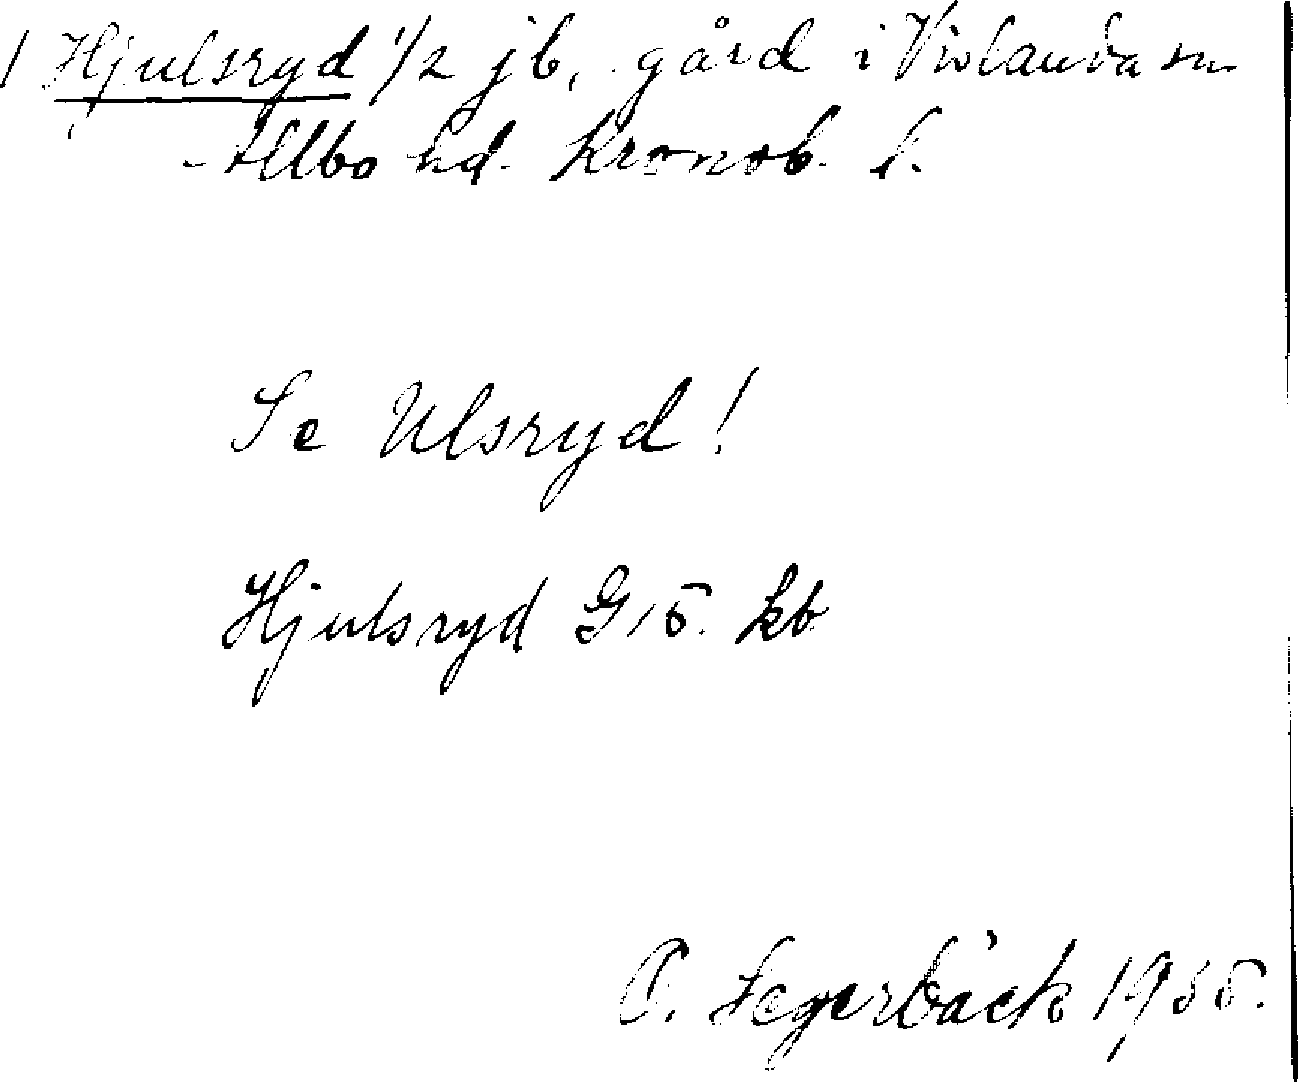 1 Hjulsryd 1/2 jb, gård i Vislanda sn
Allbo hd. Kronob. l.
Se Ulsryd!
Hjulsryd G 15. kb
O. Fagerbäck 1955.